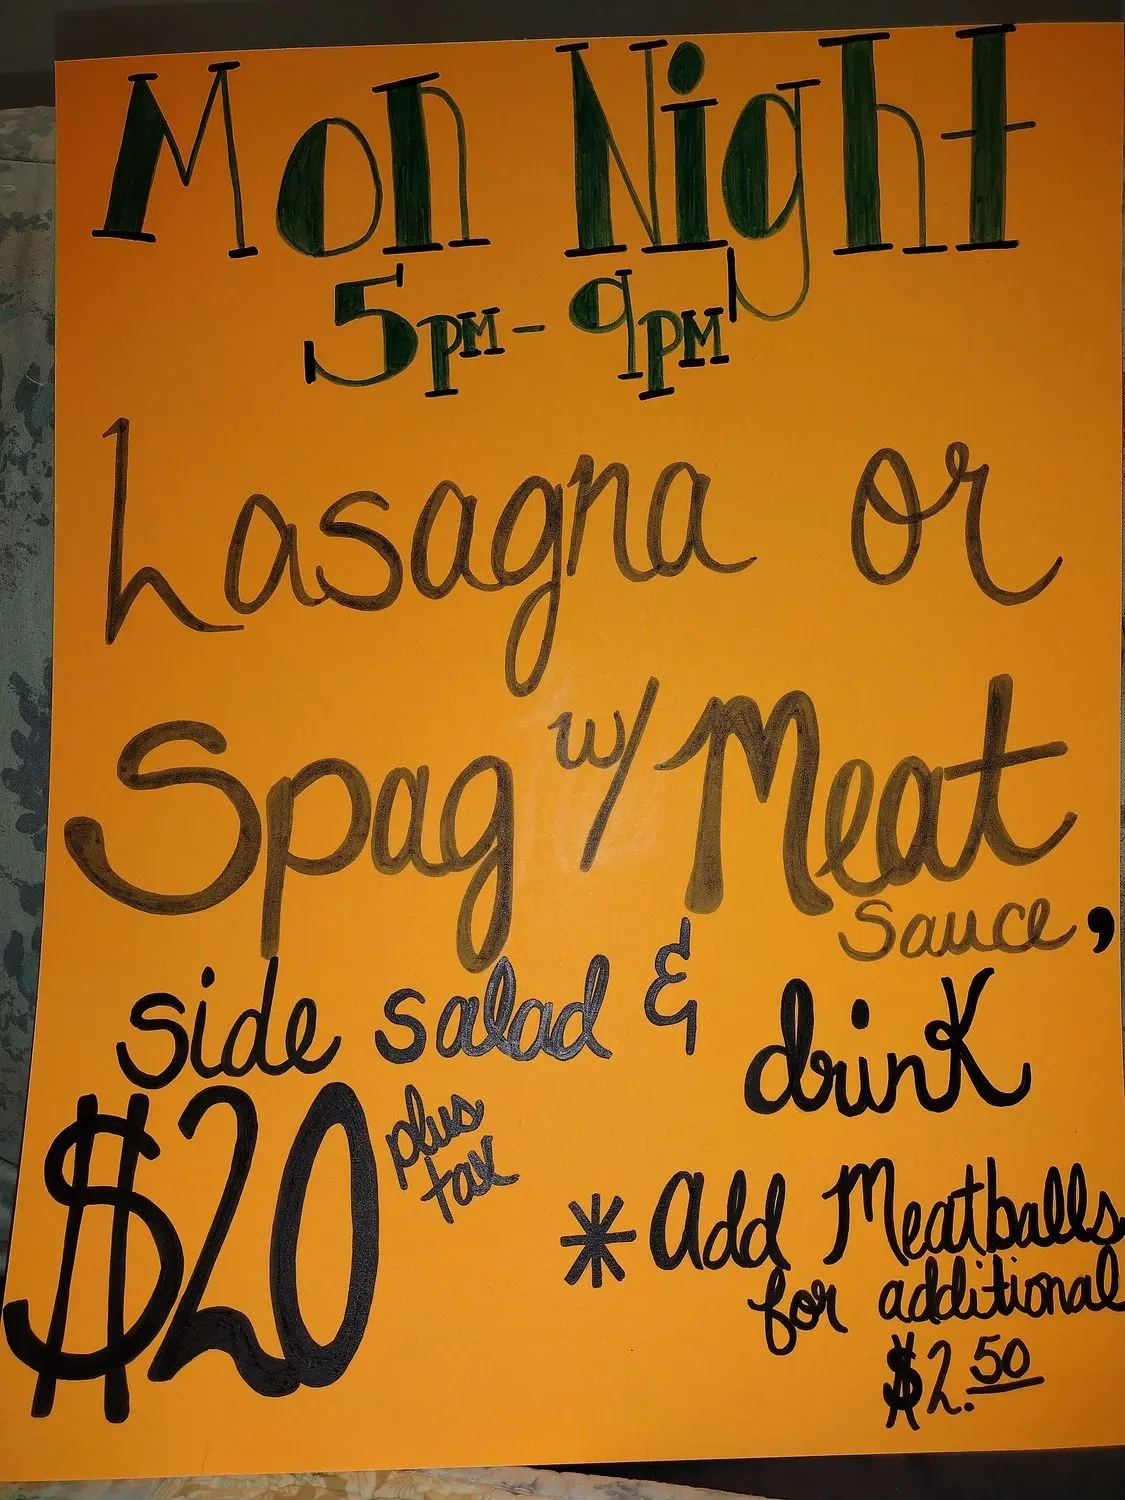 Mon Night
5PM - 9PM
Lasagna or
Spag w/ Meat
Sauce,
side salad & drink
$20 plus
tax
* Add Meatballs
for additional
$2.50